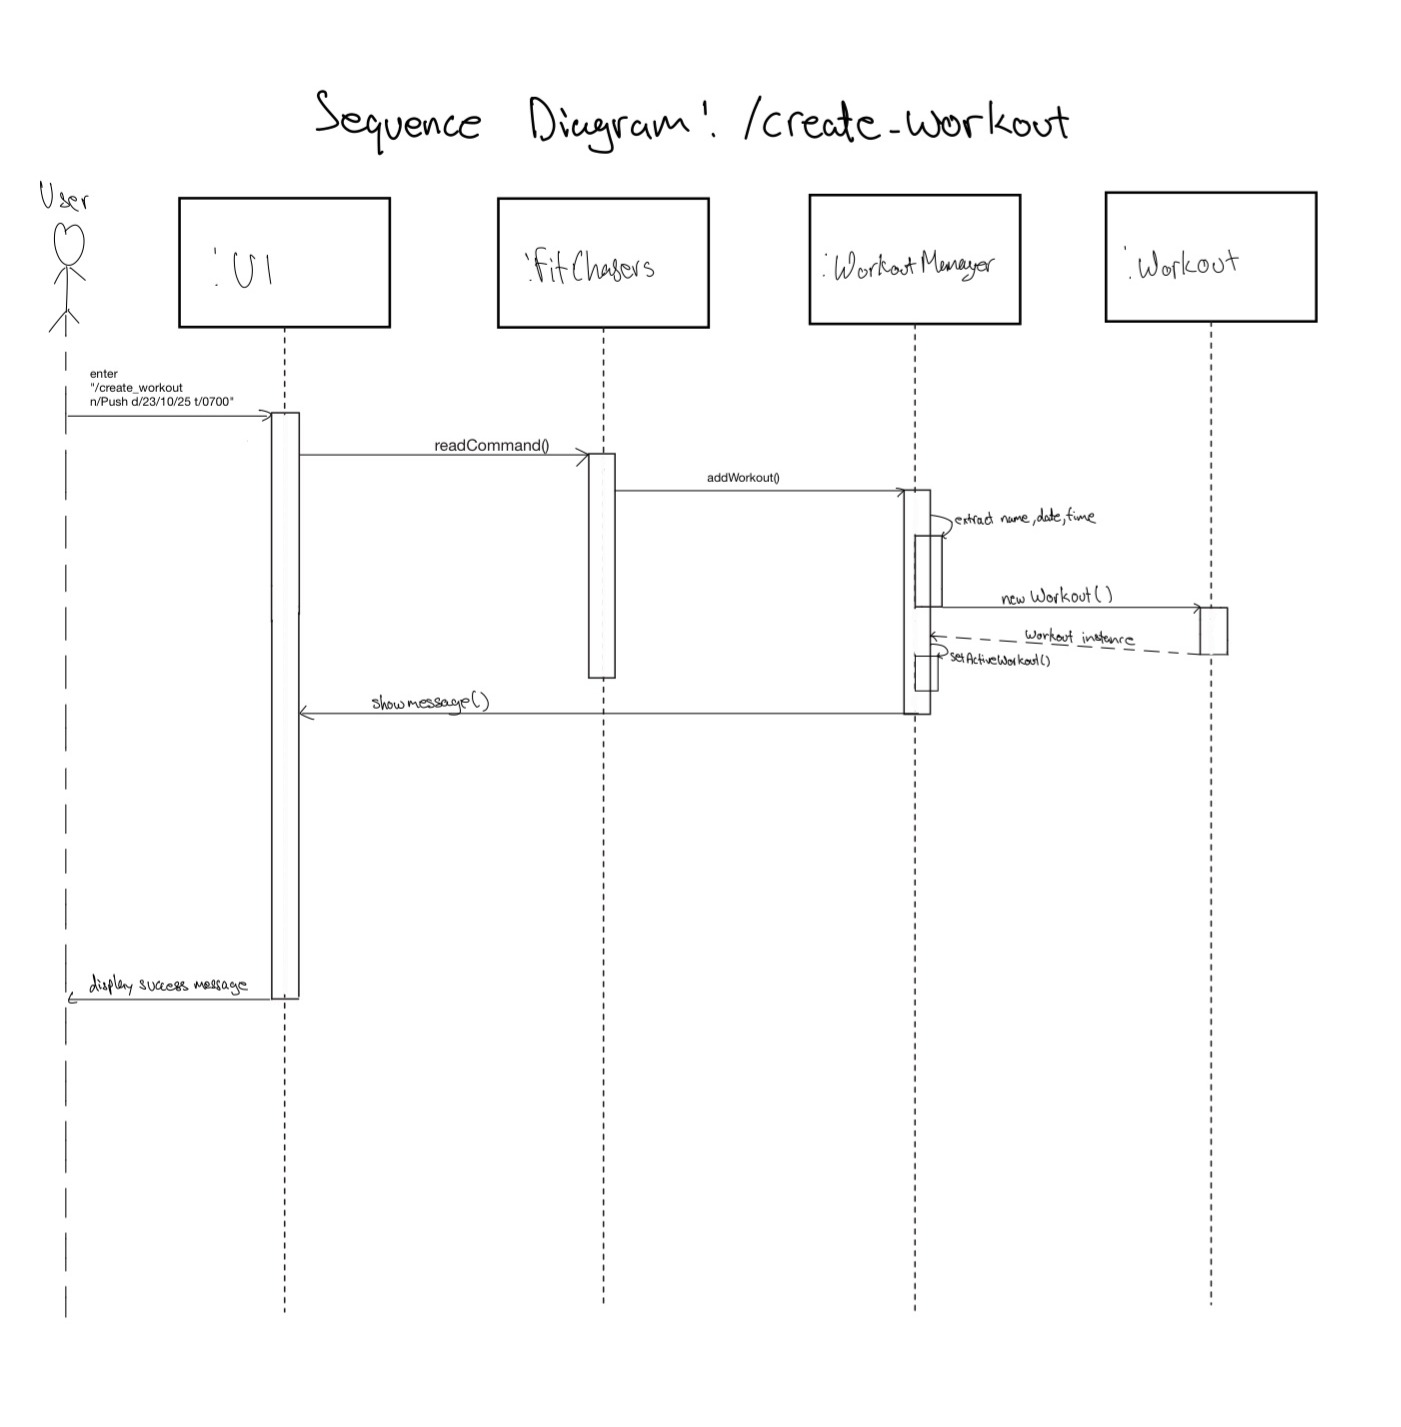 Sequence Diagram: /create-workout
User
:UI
:FitChasers
:WorkoutManager
:Workout
enter
"/create_workout
n/Push d/23/10/25 t/0700"
readCommand()
addWorkout()
extract name, date, time
new Workout()
Workout instance
setActiveWorkout()
showmessage()
display success message